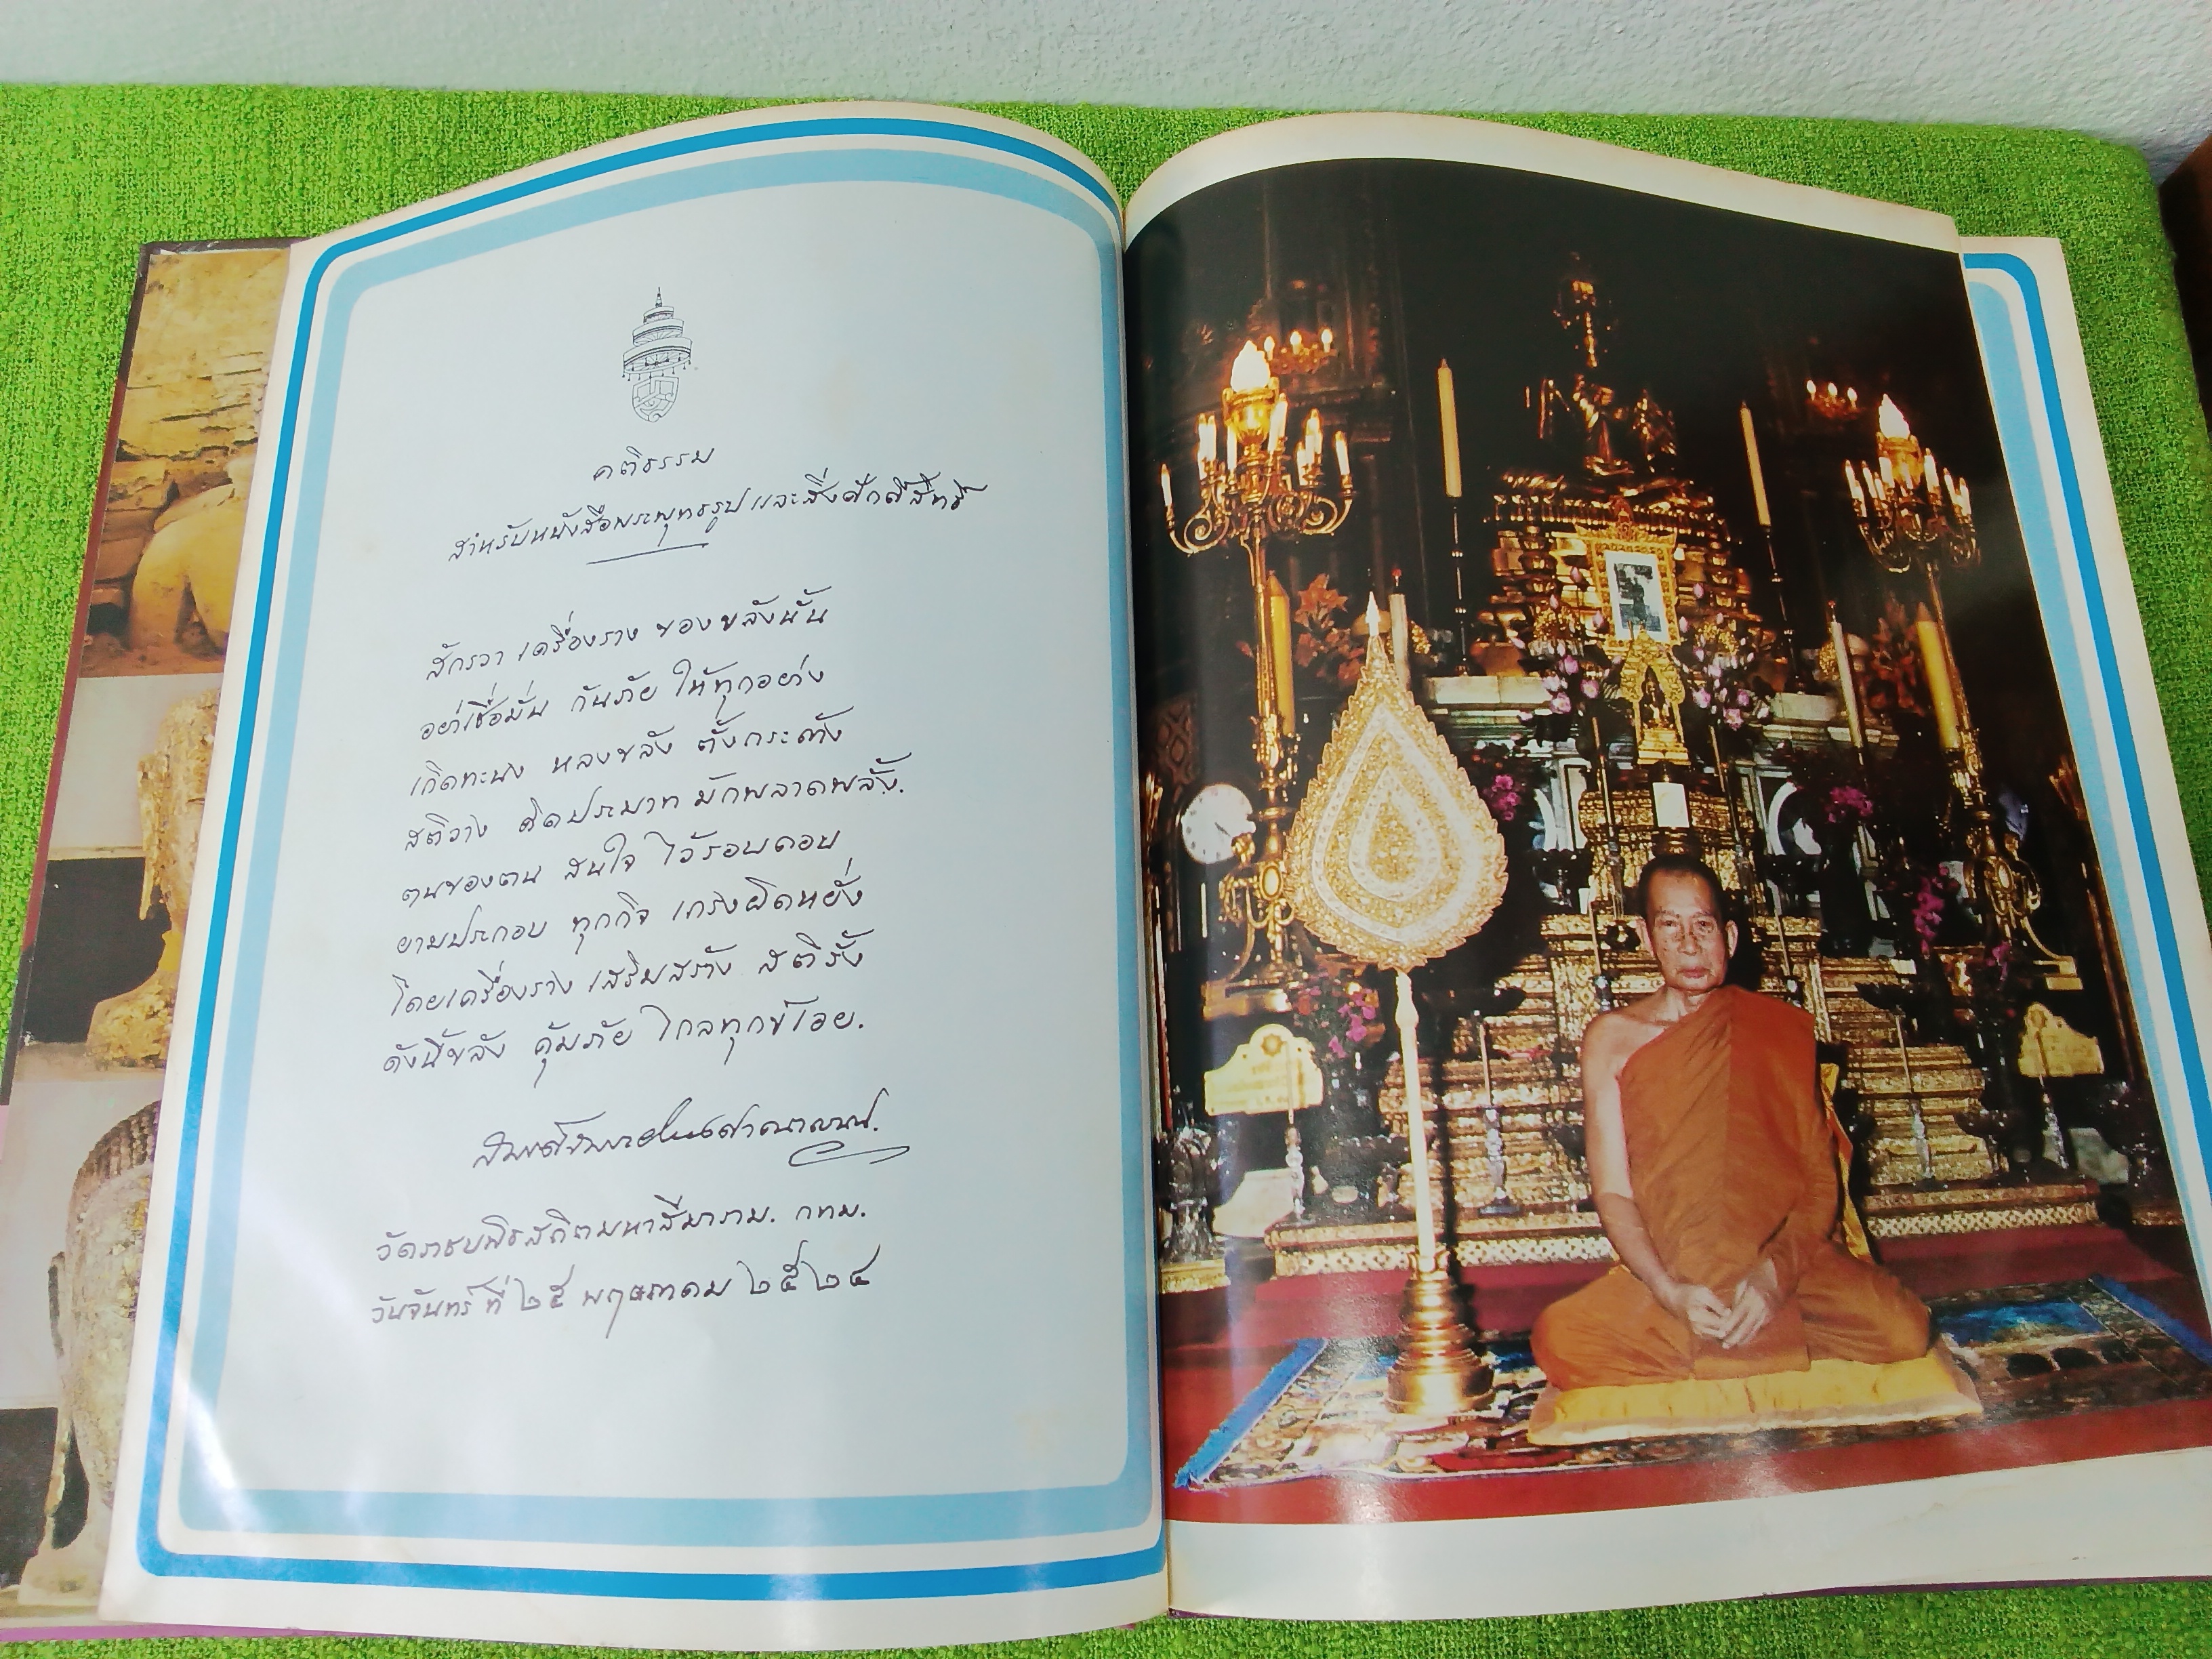 คติธรรม
สำหรับหนังสือพระพุทธรูปและสิ่งศักดิ์สิทธิ์
สักรวา เครื่องราง ของขลังนั้น
อย่าเชื่อมั่น กันภัย ให้ทุกอย่าง
เกิดทะนง หลงขลัง ตั้งกระด้าง
สติวาง คิดประมาท มักพลาดพลั้ง.
ตนของตน สนใจ ไว้รอบคอบ
ยามประกอบ ทุกกิจ เกรงผิดหยั่ง
โดยเครื่องราง เสริมสร้าง สติรั้ง
ดังนี้ขลัง คุ้มภัย ไกลทุกข์เอย.
วัดราชบพิธสถิตมหาสีมาราม. กทม.
วันจันทร์ ที่ ๒๕ พฤษภาคม ๒๕๒๔